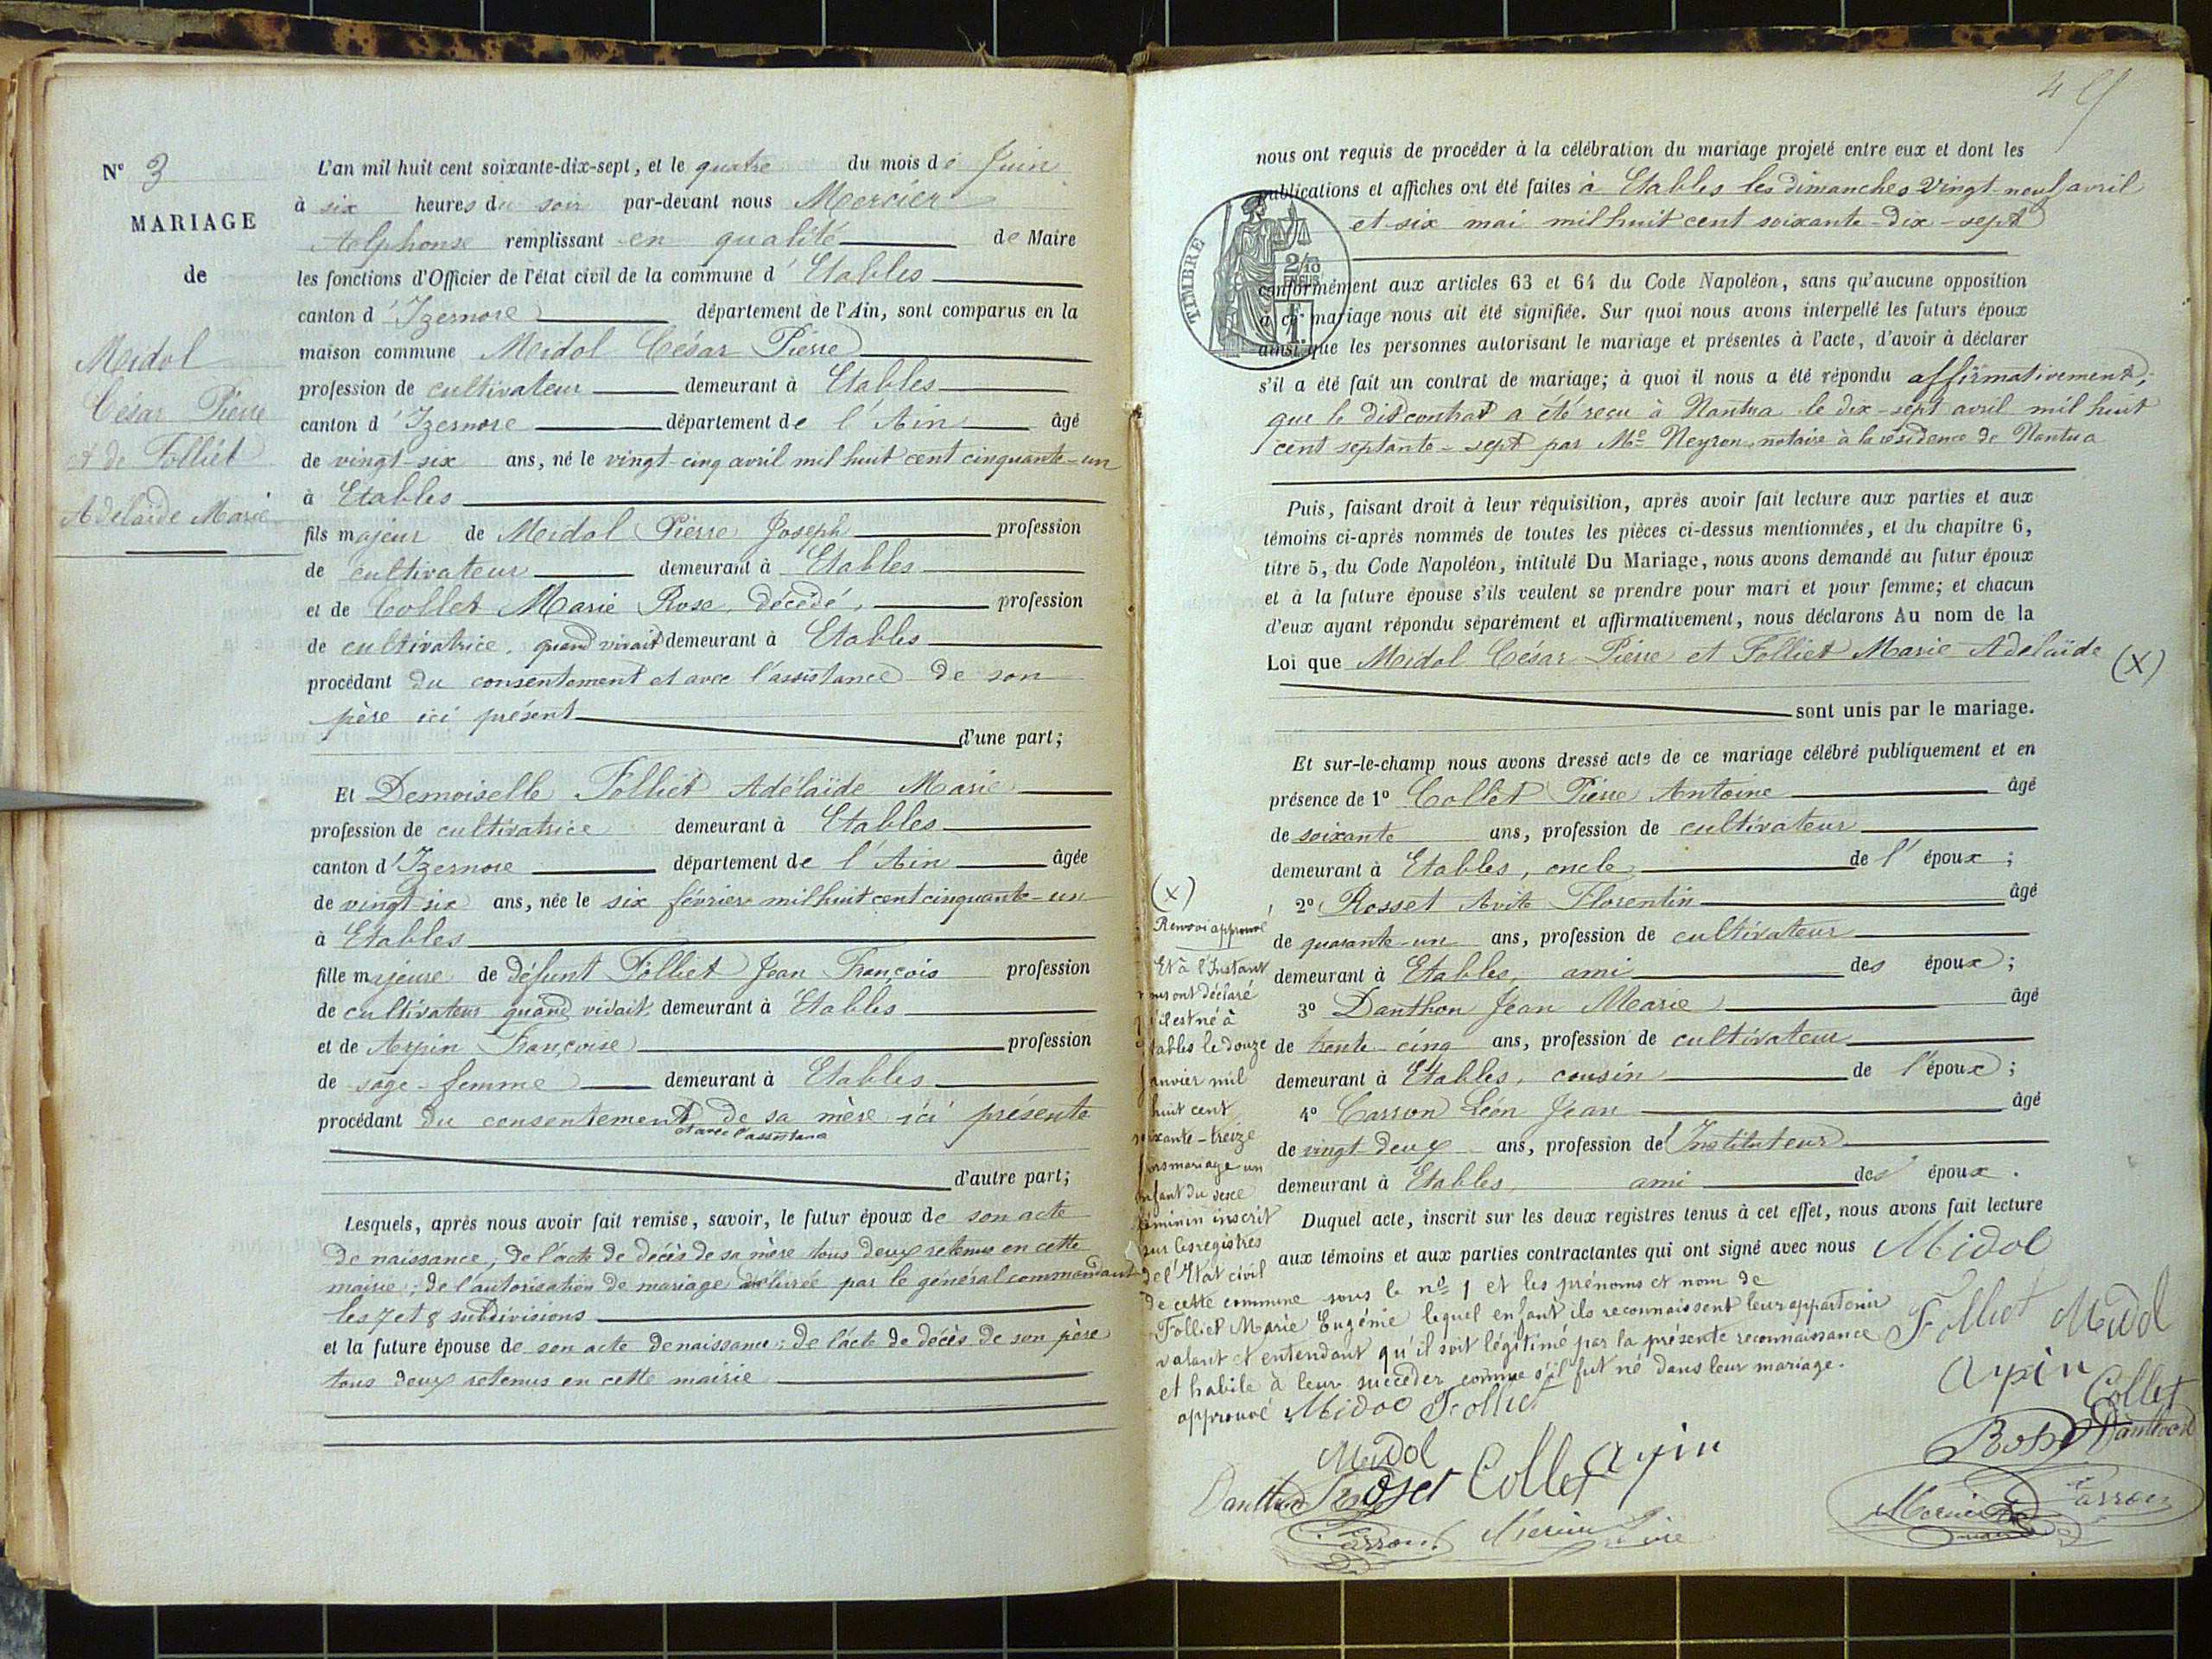 Nº 3
MARIAGE
de
Midol
César Pierre
et de Folliet
Adélaïde Marie
L'an mil huit cent soixante-dix-sept, et le quatre du mois de Juin
à six heures du soir par-devant nous Mercier
Alphonse remplissant en qualité de Maire
les fonctions d'Officier de l'état civil de la commune d'Etables
canton d'Izernore département de l'Ain, sont comparus en la
maison commune Midol César Pierre
profession de cultivateur demeurant à Etables
canton d'Izernore département de l'Ain âgé
de vingt-six ans, né le vingt-cinq avril mil huit cent cinquante-un
à Etables
fils majeur de Midol Pierre Joseph profession
de cultivateur demeurant à Etables
et de Collet Marie Rose, décédé, profession
de cultivatrice, quand vivait demeurant à Etables
procédant du consentement et avec l'assistance de son
père ici présent
d'une part;
Et Demoiselle Folliet Adélaïde Marie
profession de cultivatrice demeurant à Etables
canton d'Izernore département de l'Ain âgée
de vingt-six ans, née le six février mil huit cent cinquante-un
à Etables
fille majeure de défunt Folliet Jean François profession
de cultivateur quand vivait, demeurant à Etables
et de Arpin Françoise profession
de sage-femme demeurant à Etables
procédant du consentement de sa mère ici présente
et avec l'assistance
d'autre part;
Lesquels, après nous avoir fait remise, savoir, le futur époux de son acte
de naissance; de l'acte de décès de sa mère tous deux retenus en cette
mairie; de l'autorisation de mariage délivrée par le général commandant
les 7 et 8 subdivisions
et la future épouse de son acte de naissance; de l'acte de décès de son père
tous deux retenus en cette mairie
nous ont requis de procéder à la célébration du mariage projeté entre eux et dont les
publications et affiches ont été faites à Etables les dimanches vingt-neuf avril
et six mai mil huit cent soixante-dix-sept
TIMBRE
conformément aux articles 63 et 64 du Code Napoléon, sans qu'aucune opposition
à ce mariage nous ait été signifiée. Sur quoi nous avons interpellé les futurs époux
ainsi que les personnes autorisant le mariage et présentes à l'acte, d'avoir à déclarer
s'il a été fait un contrat de mariage; à quoi il nous a été répondu affirmativement;
que le dit contrat a été reçu à Nantua le dix-sept avril mil huit
cent septante-sept par Me Neyron, notaire à la résidence de Nantua
Puis, faisant droit à leur réquisition, après avoir fait lecture aux parties et aux
témoins ci-après nommés de toutes les pièces ci-dessus mentionnées, et du chapitre 6,
titre 5, du Code Napoléon, intitulé Du Mariage, nous avons demandé au futur époux
et à la future épouse s'ils veulent se prendre pour mari et pour femme; et chacun
d'eux ayant répondu séparément et affirmativement, nous déclarons Au nom de la
Loi que Midol César Pierre et Folliet Marie Adélaïde (X)
sont unis par le mariage.
Et sur-le-champ nous avons dressé acte de ce mariage célébré publiquement et en
présence de 1º Collet Pierre Antoine âgé
de soixante ans, profession de cultivateur
demeurant à Etables, oncle de l'époux;
2º Rosset Avite Florentin âgé
de quarante-un ans, profession de cultivateur
demeurant à Etables, ami des époux;
3º Danthon Jean Marie âgé
de trente-cinq ans, profession de cultivateur
demeurant à Etables, cousin de l'époux;
4º Carron Léon Jean âgé
de vingt-deux ans, profession de Instituteur
demeurant à Etables, ami des époux.
Duquel acte, inscrit sur les deux registres tenus à cet effet, nous avons fait lecture
aux témoins et aux parties contractantes qui ont signé avec nous Midol
Folliet Midol
Arpin
Collet
Rosset Danthon
Mercier Carron
maire
(X)
Renvoi approuvé
Et à l'Instant
nous ont déclaré
qu'il est né à
Etables le douze
Janvier mil
huit cent
soixante-treize
hors mariage un
enfant du sexe
féminin inscrit
sur les registres
de l'Etat civil
de cette commune sous le nº 1 et les prénoms et nom de
Folliet Marie Eugénie lequel enfant ils reconnaissent leur appartenir
voulant et entendant qu'il soit légitimé par la présente reconnaissance
et habile à leur succéder comme s'il fut né dans leur mariage.
approuvé Midol Folliet
Midol
Danthon Rosset Collet Arpin
Carron Mercier Maire